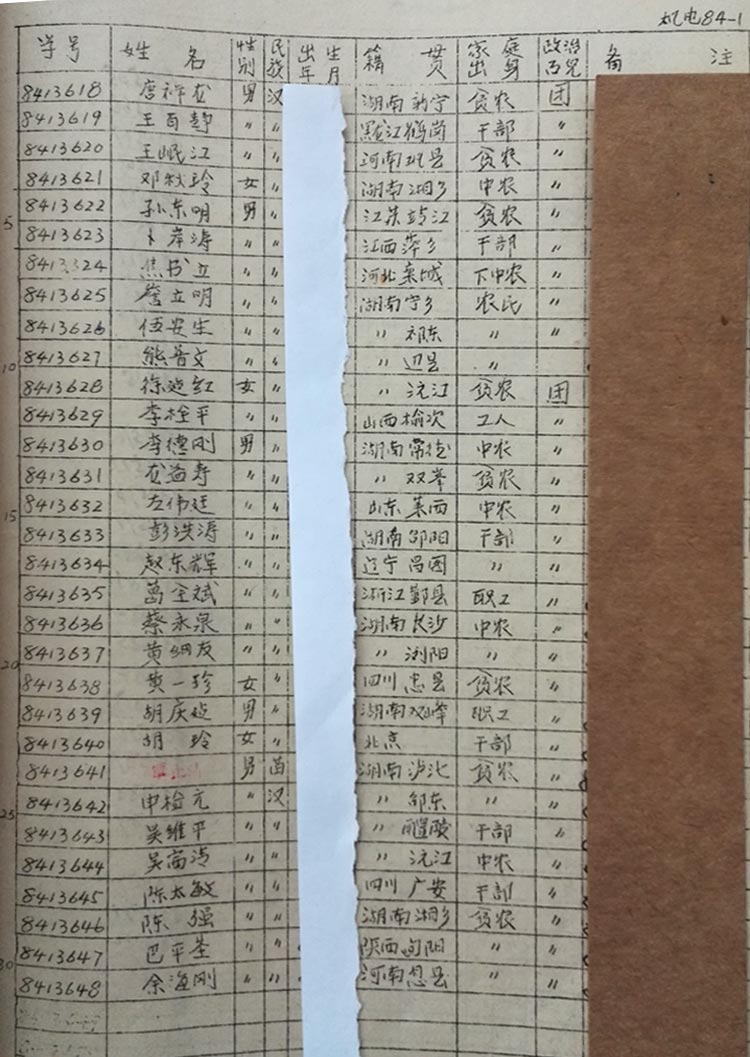 机电84-1
学号 姓名 性别 民族 出生年月 籍贯 家庭出身 政治面貌 备注
8413618 唐祥龙 男 汉 湖南新宁 贫农 团
8413619 王百静 〃 〃 黑龙江鹤岗 干部 〃
8413620 王岷江 〃 〃 河南 县 贫农 〃
8413621 邓秋玲 女 〃 湖南湘乡 中农 〃
5 8413622 孙东明 男 〃 江苏靖江 贫农 〃
8413623 卜岸涛 〃 〃 江西萍乡 干部 〃
8413624 焦书立 〃 〃 河北栾城 下中农 〃
8413625 詹立明 〃 〃 湖南宁乡 农民 〃
8413626 伍安生 〃 〃 〃 祁东 〃 〃
10 8413627 熊晋文 〃 〃 〃 县 〃
8413628 徐延红 女 〃 〃 沅江 贫农 团
8413629 李栓平 〃 〃 山西榆次 工人 〃
8413630 李德刚 男 〃 湖南常德 中农 〃
8413631 龙益寿 〃 〃 〃 双峯 贫农 〃
15 8413632 左伟廷 〃 〃 山东莱西 中农 〃
8413633 彭洪涛 〃 〃 湖南邵阳 干部 〃
8413634 赵东辉 〃 〃 辽宁昌图 〃 〃
8413635 葛全斌 〃 〃 浙江鄞县 职工 〃
8413636 蔡永泉 〃 〃 湖南长沙 中农 〃
20 8413637 黄纲友 〃 〃 〃 浏阳 〃 〃
8413638 黄一珍 女 〃 四川忠县 贫农 〃
8413639 胡庆延 男 〃 湖南双峰 职工 〃
8413640 胡玲 女 〃 北京 干部 〃
8413641 男 苗 湖南泸化 贫农 〃
25 8413642 申检元 〃 汉 〃 邵东 〃 〃
8413643 吴维平 〃 〃 〃 醴陵 干部 〃
8413644 吴富清 〃 〃 〃 沅江 中农 〃
8413645 陈太敏 〃 〃 四川广安 干部 〃
8413646 陈强 〃 〃 湖南湘乡 贫农 〃
30 8413647 巴平基 〃 〃 陕西旬阳 〃 〃
8413648 余海刚 〃 〃 河南息县 〃 〃